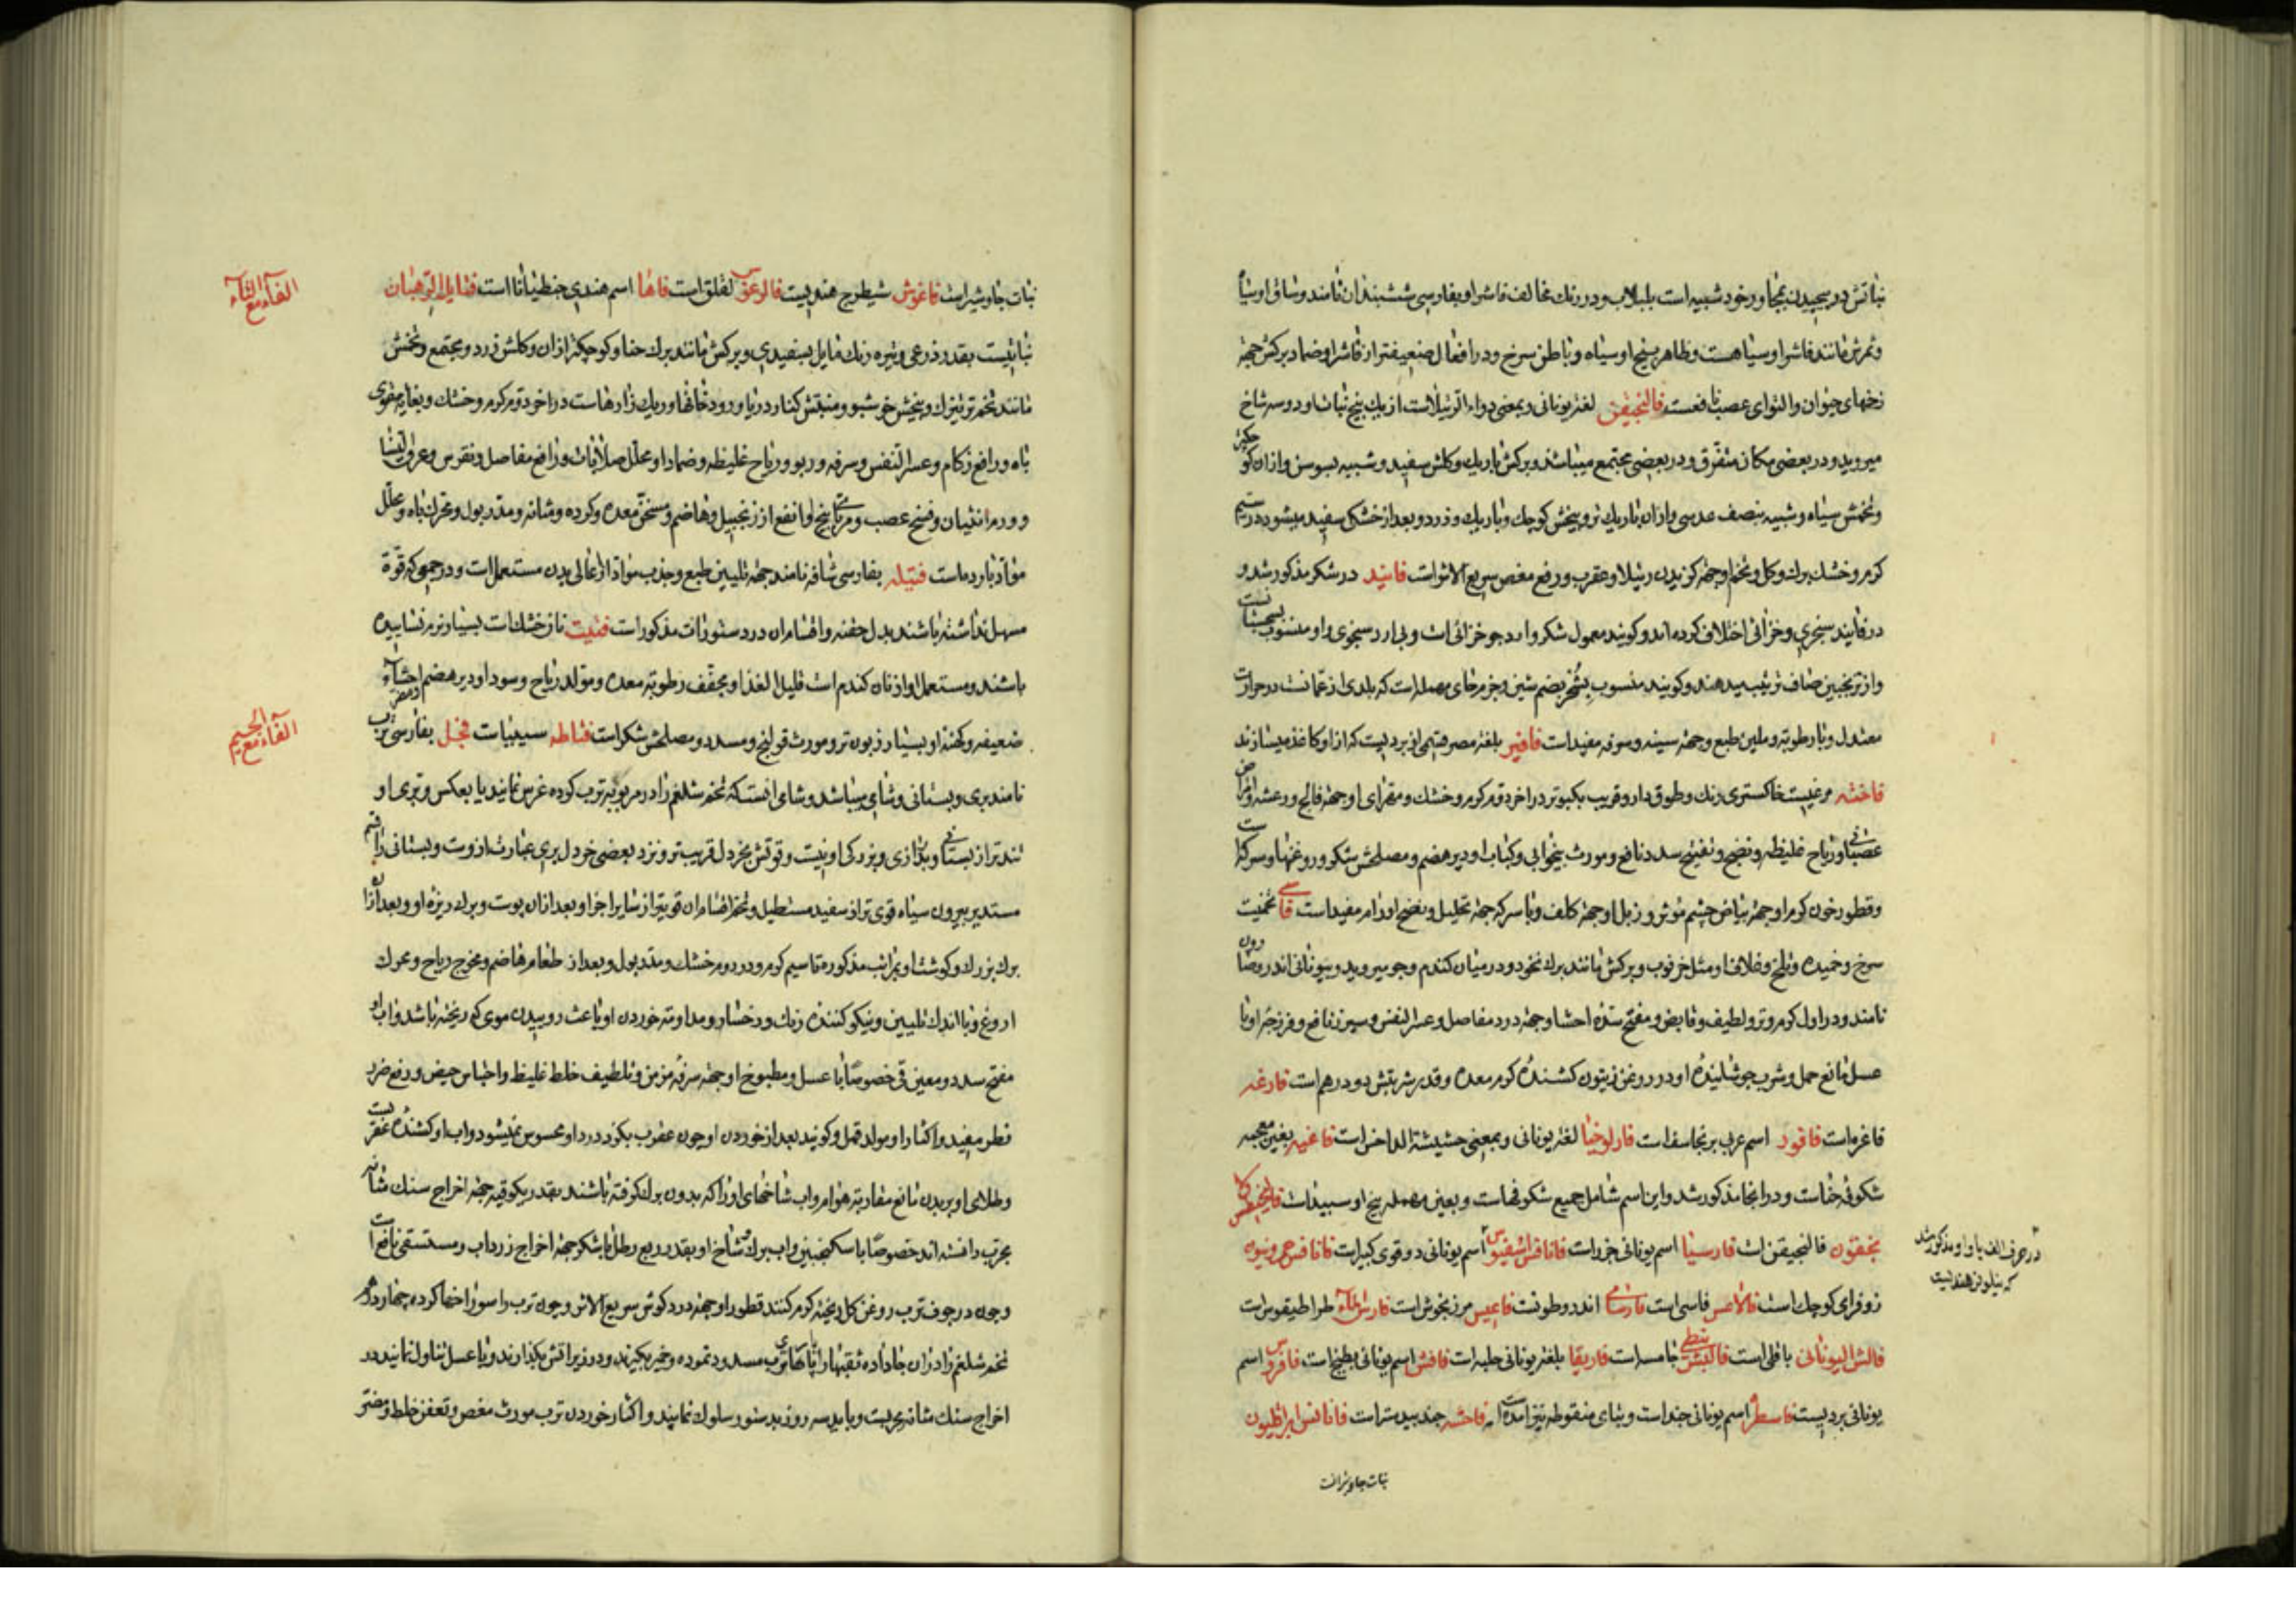 نباتش در پیچیدن بمجاور خود شبیه است بلبلاب و در رنک مخالف فاشرا و بفارسی ششبندان نامند و ساق او سیاه
و ثمرش مانند فاشرا و سیاهست و ظاهر بیخ او سیاه و باطن سرخ و در افعال ضعیفتر از فاشرا و ضماد برکش جهة
زخمهای حیوان و التوای عصب نافعست فالنجیقن لغة یونانی و بمعنی دواء الرتیلاست از یک بیخ نبات او دو سه شاخ
میروید و در بعضی مکان متفرق و در بعضی مجتمع میباشد و برکش باریک و کلش سفید و شبیه بسوسن و از ان کوچکتر
و تخمش سیاه و شبیه بنصف عدسی و از ان باریک تر و بیخش کوچک و باریک و زرد و بعد از خشکی سفید میشود در سیم
کرم و خشک برک و کل و تخم او جهة کزیدن رتیلا و عقرب و رفع مغص سریع الاثر است فانید در شکر مذکور شد و
در فانید سنجری و خزائی اختلاف کرده اند و کویند معمول شکر و ارد جو خزائی است و بی ارد سجزی و او منسوب بسجستانست
و از ترنجبین صاف ترتیب میدهند و کویند منسوب بشحر بضم شین و جزم حای مهمله است که بلدی از عمانست در حرارت
معتدل و با رطوبة و ملین طبع و جهة سینه و سرفه مفید است فافیر بلغة مصر قسمی از بردیست که از او کاغذ میسازند
فاخته مرغیست خاکستری رنک و طوق دار و قریب بکبوتر در اخر دوم کرم و خشک و مقرای او جهة فالج و رعشه و امراض
عصبانی و ریاح غلیظه و نضج و تفتیح سدد نافع و مورث بیخوابی و کباب او دیر هضم و مصلحش شکر و روغنها و سرکه است
و قطور خون کرم او جهة بیاض چشم مؤثر و زبل او جهة کلف و با سرکه جهة تحلیل و نضج اورام مفید است فاسی تخمیست
سرخ و خمیده و تلخ و غلاف او مثل خرنوب و برکش مانند برک نخود و در میان کندم و جو میروید و بیونانی اندروصارون
نامند و در اول کرم و تر و لطیف و قابض و مفتح سده احشا و جهة درد مفاصل و عسر النفس و سپرز نافع و فرزجة او با
عسل مانع حمل و شرب جوشانیدهٔ او در روغن زیتون کشندهٔ کرم معده و قدر شربتش دو درهم است فارغه
فاغره است فاقور اسم عربی برنجاسف است فارلوخیا لغة یونانی و بمعنی حشیشة الداحس است فاغیه بغین معجمه
شکوفه حناست و در انجا مذکور شد و این اسم شامل جمیع شکوفهاست و بعین مهمله بیخ او سپید است
فالنجیقن است فارسنا اسم یونانی خزر است اسم یونانی دوقوی کبیر است
زوفرای کوچک است فاسی است اندروطونست مرزنجوش است طراطیقوس است
فالش الیونانی باقلی است جامسه است فاریقا بلغة یونانی حلبه است فافش اسم یونانی بطیخ است اسم
یونانی بردیست اسم یونانی جند است و بثای منقوطه نیز امده است فاحشه جند بیدستر است
نبات جاوشیر است
در حرف الف با واو مذکور شد
که نیلوفر هندیست
نبات جاوشیر است فاغوش شیطرج هندیست فلفلق است فاها اسم هندی جنطیانا است فتایل الرهبان
نباتیست بقدر ذرعی و تیره رنک مایل بسفیدی و برکش مانند برک حنا و کوچکتر از ان و کلش زرد و مجتمع و تخمش
مانند تخم ترتیزک و بیخش خوشبو و منبتش کنار دریا و رودخانها و ریک زارهاست در اخر دوم کرم و خشک و بغایة مقوی
باه و رافع زکام و عسر النفس و سرفه و ربو و ریاح غلیظه و ضماد او محلل صلابات و رافع مفاصل و نقرس و عرق النسا
و ورم انثیان و فسخ عصب و مربای بیخ او انفع از زنجبیل و هاضم و مسخن معده و کرده و مثانه و مدر بول و محرک باه و محلل
مواد بارده است فتیله بفارسی شافه نامند جهة تلیین طبع و جذب مواد از اعالی بدن مستعمل است و در جمعی که قوة
مسهل نداشته باشند بدل حقنه و اقسام ان در دستورات مذکور است فتیت نان خشک است بسیار نرم نساییده
باشند و مستعمل او از نان کندم است قلیل الغذا و مجفف رطوبة معده و مولد ریاح و سودا و دیر هضم و مضر احشاء
ضعیفه و کهنه او بسیار زبون تر و مورث قولنج و سدد و مصلحش شکر است فثاطه سیبیات فجل بفارسی ترب
نامند بری و بستانی و شامی میباشد و شامی انست که تخم شلغم را در مربیٔ ترب کرده غرس نمایند یا بعکس و بری او
تندتر از بستانی و بدرازی و بزرکی او نیست و قوتش بخردل قریب تر و نزد بعضی خردل بری عبارت از وست و بستانی را قسم
مستدیر بیرون سیاه قوی تر از سفید مستطیل و تخم اقسام ان قویتر از سایر اجزا و بعد از ان پوست و برک ریزهٔ او و بعد از ان
برک بزرک و کوشت او بمراتب مذکوره تا سیم کرم و در دوم خشک و مدر بول و بعد از طعام هاضم و مخرج ریاح و محرک
اروغ و با اندک تلیین و نیکو کنندهٔ رنک و رخسار و مداومة خوردن او باعث روییدن موی که ریخته باشد و اب او
مفتح سدد و معین قی خصوصا با عسل و مطبوخ او جهة سرفهٔ مزمن و تلطیف خلط غلیظ و احتباس حیض و رفع ضرر
فطر مفید و اکثار او مولد قمل و کویند بعد از خوردن او چون عقرب بکزد درد او محسوس نمیشود و اب او کشندهٔ عقربست
و طلای او بر بدن مانع مقاربة هوام و اب شاخهای او را که بدون برک کرفته باشند بقدر یکوقیه جهة اخراج سنک مثانه
مجرب دانسته اند خصوصا با سکنجبین و اب برک و شاخ او بقدر ربع رطل با شکر جهة اخراج زرداب و مستسقی نافع است
و چون در جوف ترب روغن کل ریخته کرم کنند قطور او جهة درد کوش سریع الاثر و چون ترب را سوراخها کرده چهار درم
تخم شلغم را در ان جا داده ثقبها را مسدود نموده و خمیر بکیرند و در زیر اتش بکذارند و با عسل تناول نمایند در
اخراج سنک مثانه مجربست و باید سه روز بدستور سلوک نمایند و اکثار خوردن ترب مورث مغص و تعفن خلط و مضر
الفاء مع التاء
الفاء مع الجیم